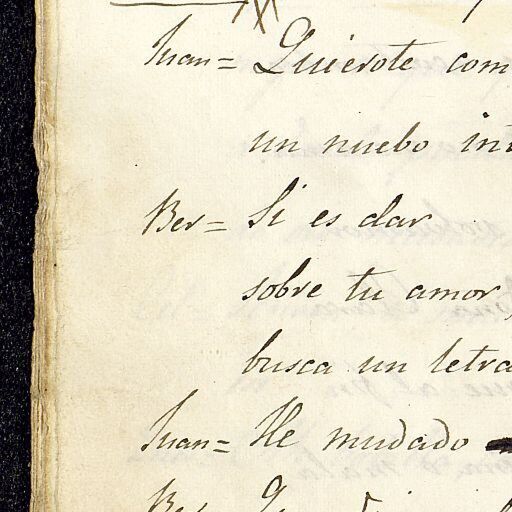 Juan= Quierote com
un nuebo int
Ber= Si es dar
sobre tu amor,
busca un letra
Juan= He mudado
Ber